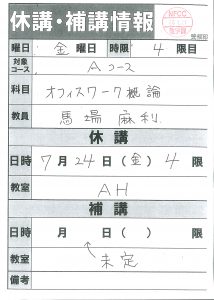 休講・補講情報
NFCC
教務部
曜日 金 曜日 時限 4 限目
対象コース Aコース
科目 オフィスワーク概論
教員 馬場 麻利
休講
日時 7月24日(金) 4 限
教室 AH
補講
日時 月 日( ) 限
教室 未定
備考